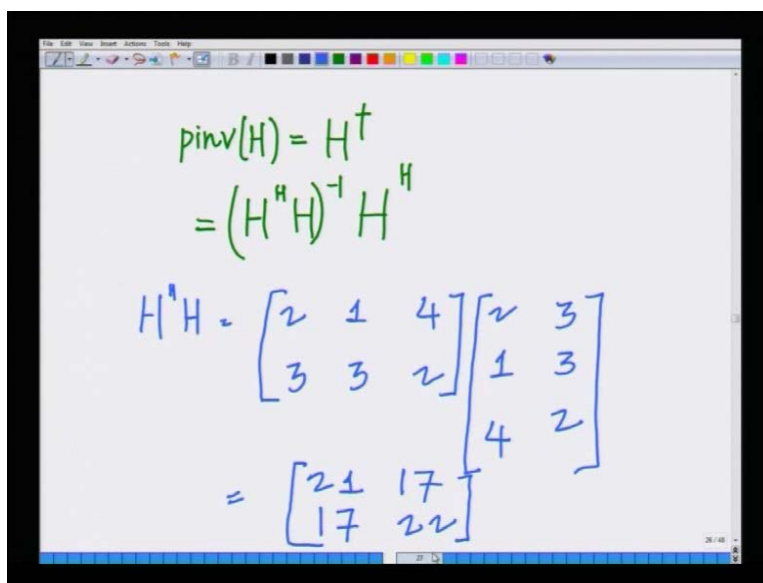 File Edit View Insert Actions Tools Help
pinv(H) = H†
= (H^H H)^-1 H^H
H^H H = [2 1 4] [2 3]
[3 3 2] [1 3]
[4 2]
= [21 17]
[17 22]
26/48
27